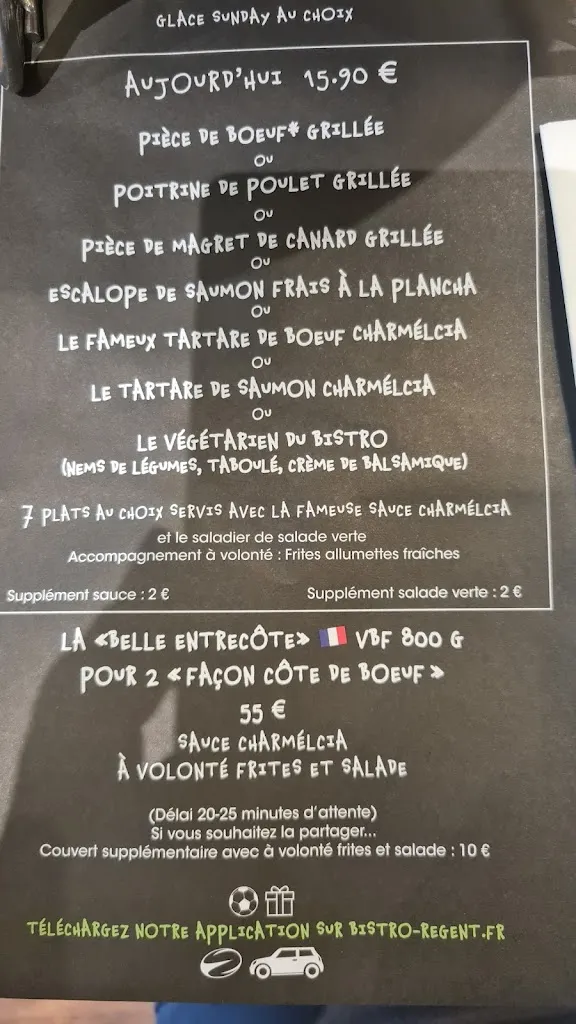 GLACE SUNDAY AU CHOIX
AUJOURD'HUI 15.90 €
PIÈCE DE BOEUF* GRILLÉE
OU
POITRINE DE POULET GRILLÉE
OU
PIÈCE DE MAGRET DE CANARD GRILLÉE
OU
ESCALOPE DE SAUMON FRAIS À LA PLANCHA
OU
LE FAMEUX TARTARE DE BOEUF CHARMÉLCIA
OU
LE TARTARE DE SAUMON CHARMÉLCIA
OU
LE VÉGÉTARIEN DU BISTRO
(NEMS DE LÉGUMES, TABOULÉ, CRÈME DE BALSAMIQUE)
7 PLATS AU CHOIX SERVIS AVEC LA FAMEUSE SAUCE CHARMÉLCIA
et le saladier de salade verte
Accompagnement à volonté : Frites allumettes fraîches
Supplément sauce : 2 € Supplément salade verte : 2 €
LA «BELLE ENTRECÔTE» VBF 800 G
POUR 2 « FAÇON CÔTE DE BOEUF »
55 €
SAUCE CHARMÉLCIA
À VOLONTÉ FRITES ET SALADE
(Délai 20-25 minutes d'attente)
Si vous souhaitez la partager...
Couvert supplémentaire avec à volonté frites et salade : 10 €
TÉLÉCHARGEZ NOTRE APPLICATION SUR BISTRO-REGENT.FR